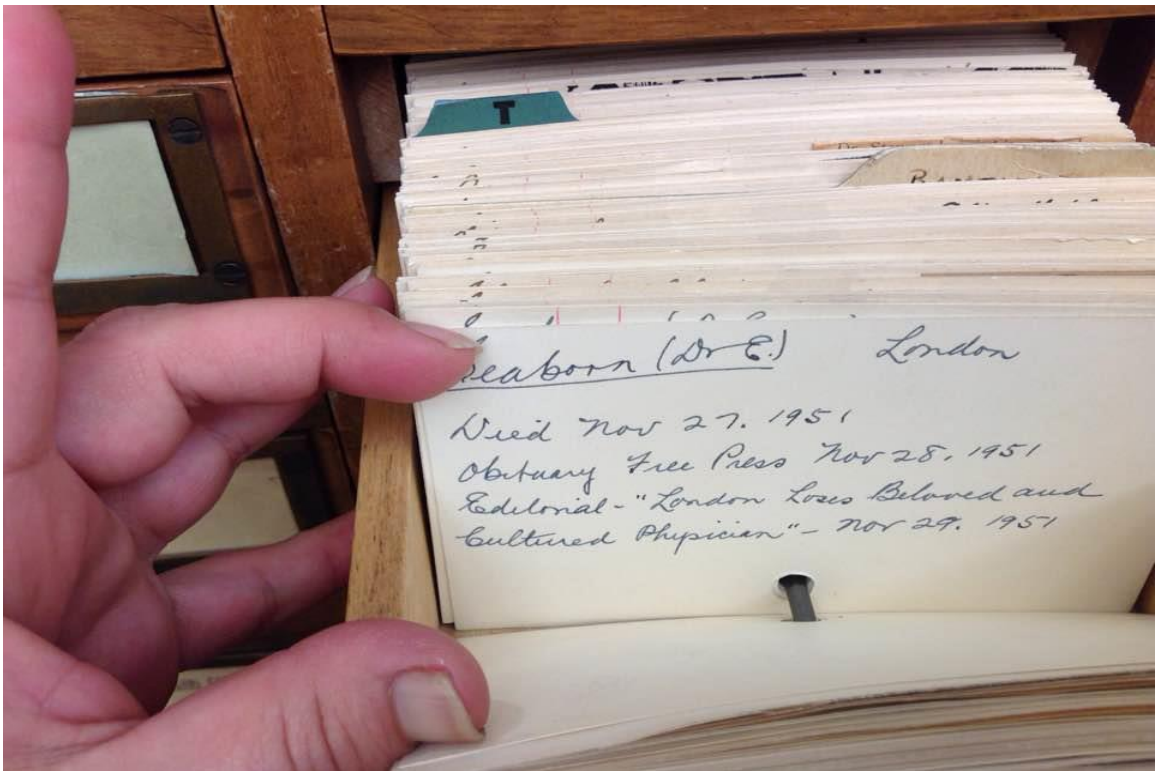 T
Seaborn (Dr E.) London
Died Nov 27. 1951
Obituary Free Press Nov 28, 1951
Editorial - "London Loses Beloved and
Cultured Physician" - Nov 29. 1951